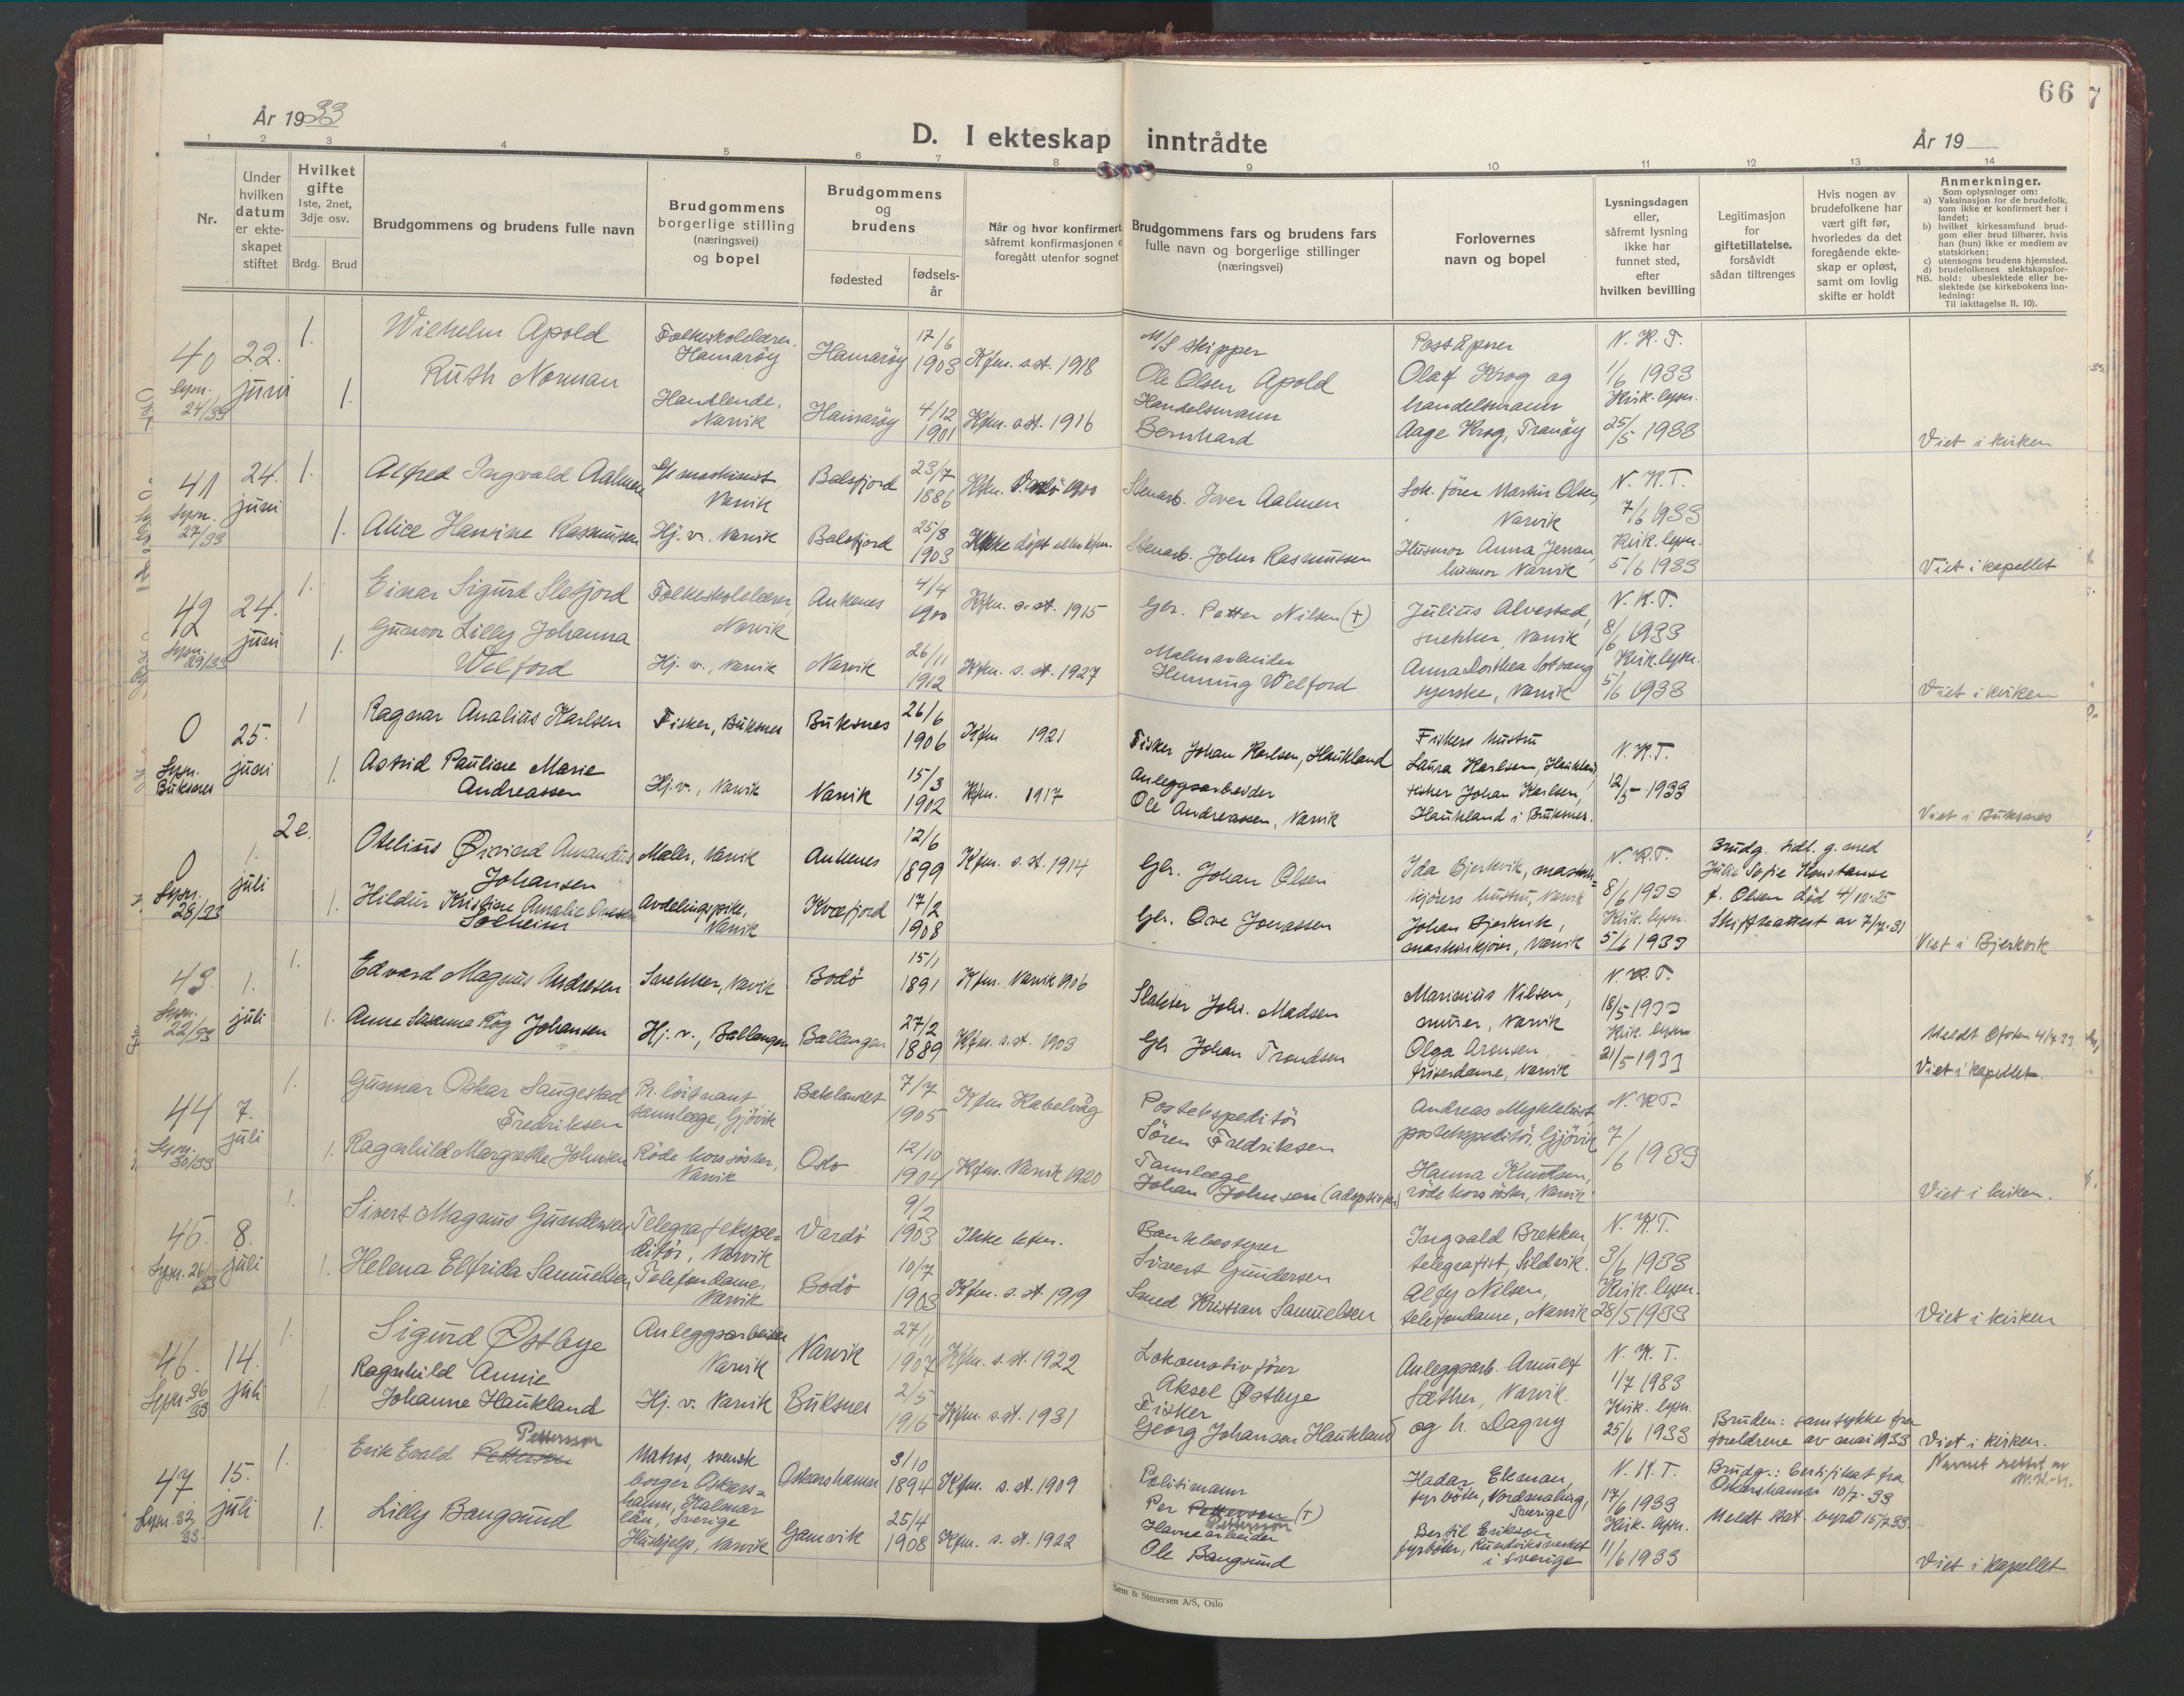 66
7
År 1933
D. I ekteskap inntrådte
År 19
1 2 3 4 5 6 7 8 9 10 11 12 13 14
Nr.
Under hvilken datum er ekteskapet stiftet
Hvilket gifte
1ste, 2net, 3dje osv.
Brdg. Brud
Brudgommens og brudens fulle navn
Brudgommens borgerlige stilling (næringsvei) og bopel
Brudgommens og brudens
fødested
fødselsår
Når og hvor konfirmert
såfremt konfirmasjonen e
foregått utenfor sognet
Brudgommens fars og brudens fars
fulle navn og borgerlige stillinger
(næringsvei)
Forlovernes
navn og bopel
Lysningsdagen
eller,
såfremt lysning
ikke har
funnet sted,
efter
hvilken bevilling
Legitimasjon
for
giftetillatelse,
forsåvidt
sådan tiltrenges
Hvis nogen av
brudefolkene har
vært gift før,
hvorledes da det
foregående ekte-
skap er opløst,
samt om lovlig
skifte er holdt
Anmerkninger.
Som oplysninger om:
a) Vaksinasjon for de brudefolk,
som ikke er konfirmert her i
landet;
b) hvilket kirkesamfund brud-
gom eller brud tilhører, hvis
han (hun) ikke er medlem av
statskirken;
c) utensogns brudens hjemsted.
d) brudefolkenes slektskapsfor-
NB. hold: ubeslektede eller be-
slektede (se kirkebokens inn-
ledning:
Til iakttagelse II, 10).
40 lysn. 24/33
22. juni
1. Wilhelm Apold
Folkeskolelærer. Hamarøy
Hamarøy 17/6 1903 Kfm. s. st. 1918
M/S skipper
Ole Olsen Apold
1. Ruth Norman
Handlende, Narvik
Hamarøy 4/12 1901 Kfm. s. st. 1916
Handelsmann
Bernhard
Poståpner
Olaf Krog og
handelsmann
Aage Krog, Tranøy
N. K. T.
1/6 1933
Kirk. lysn.
25/5 1933
Viet i kirken
41 lysn. 27/33
24. juni
1. Alfred Ingvald Aalmen
maskinist, Narvik
Balsfjord 23/7 1886 Kfm. Vardö 1900
Stenarb. Iver Aalmen
1. Alice Hansine Rasmussen
Hj. v. Narvik
Balsfjord 25/8 1903 Ikke døpt eller kfm.
Stenarb. John Rasmussen
Lok. fører Martin Olsen,
Narvik
Husmor Anna Jensen,
husmor Narvik
N. K. T.
7/6 1933
Kirk. lysn.
5/6 1933
Viet i kapellet
42 Lysn. 29/33
24. juni
1. Einar Sigurd Slefjord
Folkeskolelærer, Narvik
Ankenes 4/4 1900 Kfm. s. st. 1915
Gbr. Petter Nilsen (+)
1. Gunvor Lilly Johanna
Welford
Hj. v., Narvik
Narvik 26/11 1912 Kfm. s. st. 1927
Malmarbeider
Henning Welford
Julius Alvestad,
snekker, Narvik
Anna Dorthea Sotvang
syerske, Narvik
N. K. T.
8/6 1933
Kirk. lysn.
5/6 1933
Viet i kirken
0 Lysn. Buksnes
25. juni
1. Ragnar Analius Karlsen
Fisker, Buksnes
Buksnes 26/6 1906 Kfm 1921
Fisker Johan Karlsen, Haukland
1. Astrid Pauline Marie
Andreassen
Hj. v., Narvik
Narvik 15/3 1902 Kfm. 1917
Anleggsarbeider
Ole Andreassen, Narvik
Fiskers hustru
Laura Karlsen, Haukland
fisker Johan Karlsen,
Haukland i Buksnes.
N. K. T.
12/5- 1933
Viet i Buksnes
0 Lysn. 28/33
1. juli
2e. Otelius Øivind Amandus
Johansen
Maler, Narvik
Ankenes 12/6 1899 Kfm. s. st. 1914
Gbr. Johan Olsen
1. Hildur Kristine Amalie Ovesen
Solheim
Avdelingspike, Narvik
Kvæfjord 17/2 1908
Gbr. Ove Jonassen
Ida Bjerkvik, maskin-
kjørers hustru, Narvik
Johan Bjerkvik,
maskinkjører, Narvik
N. K. T.
8/6 1933
Kirk. lysn.
5/6 1933
Brudg. tidl. g. med
Julie Sofie Konstanse
f. Olsen død 4/10-25
Skifteattest av 7/7-31
Viet i Bjerkvik
43. Lysn. 22/33
1. juli
1. Edvard Magnus Andresen
Snekker, Narvik
Bodö 15/1 1891 Kfm. Narvik 1906
Slakter Johs. Madsen
1. Anne Susanna Røg Johansen
Hj. v., Ballangen
Ballangen 27/2 1889 Kfm. s. st. 1903
Gbr. Johan Trondsen
Marinius Nilsen,
murer, Narvik
Olga Aronsen,
friserdame, Narvik
N. K. T.
18/5 1933
Kirk. lysn.
21/5 1933
Meldt Ofoten 4/7-33.
Viet i kapellet.
44 Lysn. 30/33
7. juli
1. Gunnar Oskar Saugestad
Fredriksen
Pr. löitnant
tannlæge, Gjövik
7/7 1905 Kfm Kabelvåg
Postekspeditör
Sören Fredriksen
1. Ragnhild Margrethe Johnsen
Röde kors söster, Narvik
Oslo 12/10 1904 Kfm. Narvik 1920
Tannlæge
Johan Johnsen (adoptivfar)
Andreas Myklebust,
postekspeditör, Gjövik
Hanna Knutsen,
röde kors söster, Narvik
N. K. T.
7/6 1933
Viet i kirken.
45. Lysn. 26/33
8. juli
1. Sivert Magnus Gundersen
Telegrafekspe-
ditör, Narvik
Vardö 9/2 1903 Ikke kfm.
Bankbestyrer
Sivert Gundersen
1. Helena Elfrida Samuelsen
Telefondame, Narvik
Bodö 10/7 1903 Kfm. s. st. 1919
Smed Kristian Samuelsen
Ingvald Brekken,
telegrafist, Sildvik.
Alfy Nilsen,
telefondame, Narvik
N. K. T.
3/6 1933
Kirk. lysn.
28/5 1933
Viet i kirken
46. Lysn. 36/33
14. juli
1. Sigurd Østbye
Anleggsarbeider
Narvik
Narvik 27/11 1907 Kfm. s. st. 1922
Lokomotivförer
Aksel Østbye
1. Ragnhild Annie
Johanne Haukland
Hj. v. Narvik
Buksnes 2/5 1915 Kfm. s. st. 1931
Fisker
Georg Johansen Haukland
Anleggsarb. Arnulf
Sæther, Narvik.
og h. Dagny
N. K. T.
1/7 1933
Kirk. lysn.
25/6 1933
Bruden: samtykke fra
foreldrene av mai 1933
Viet i kirken.
47 Lysn. 32/33.
15. juli
1. Erik Evald Petterson
Pettersson
Matros, svensk
borger Oskars=
hamn, Kalmar
län, Sverige
Oskarshamn 3/10 1894 Kfm. s. st. 1909
Politimann
Per Petterson (+)
Pettersson
1. Lilly Bangsund
Hushjelp, Narvik
Gamvik 25/4 1908 Kfm. s. st. 1922
Havnearbeider
Ole Bangsund
Hadar Ekman,
fyrböter, Nordmaling,
Sverige
Bertil Erikson
fyrböter, Rundviksverket
i Sverige
N. K. T.
17/6 1933
Kirk. lysn.
11/6 1933
Brudg.: Certifikat fra
Oskarshamn 10/7-33
Meldt Stat. byrå 15/7 33.
Navnet rettet av
Viet i kapellet
Sem & Stenersen A/S, Oslo